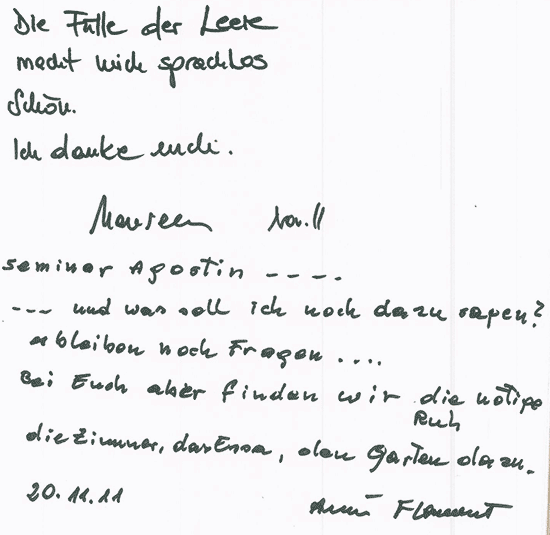 Die Fülle der Leere
macht mich sprachlos
Schön.
Ich danke euch.
Maureen Nov. 11
Seminar Agostin ----.
--- und was soll ich noch dazu sagen?
bleiben noch Fragen ....
Bei Euch aber finden wir die nötige
Ruh
die Zimmer, das Essa, den Garten dazu.
20.11.11